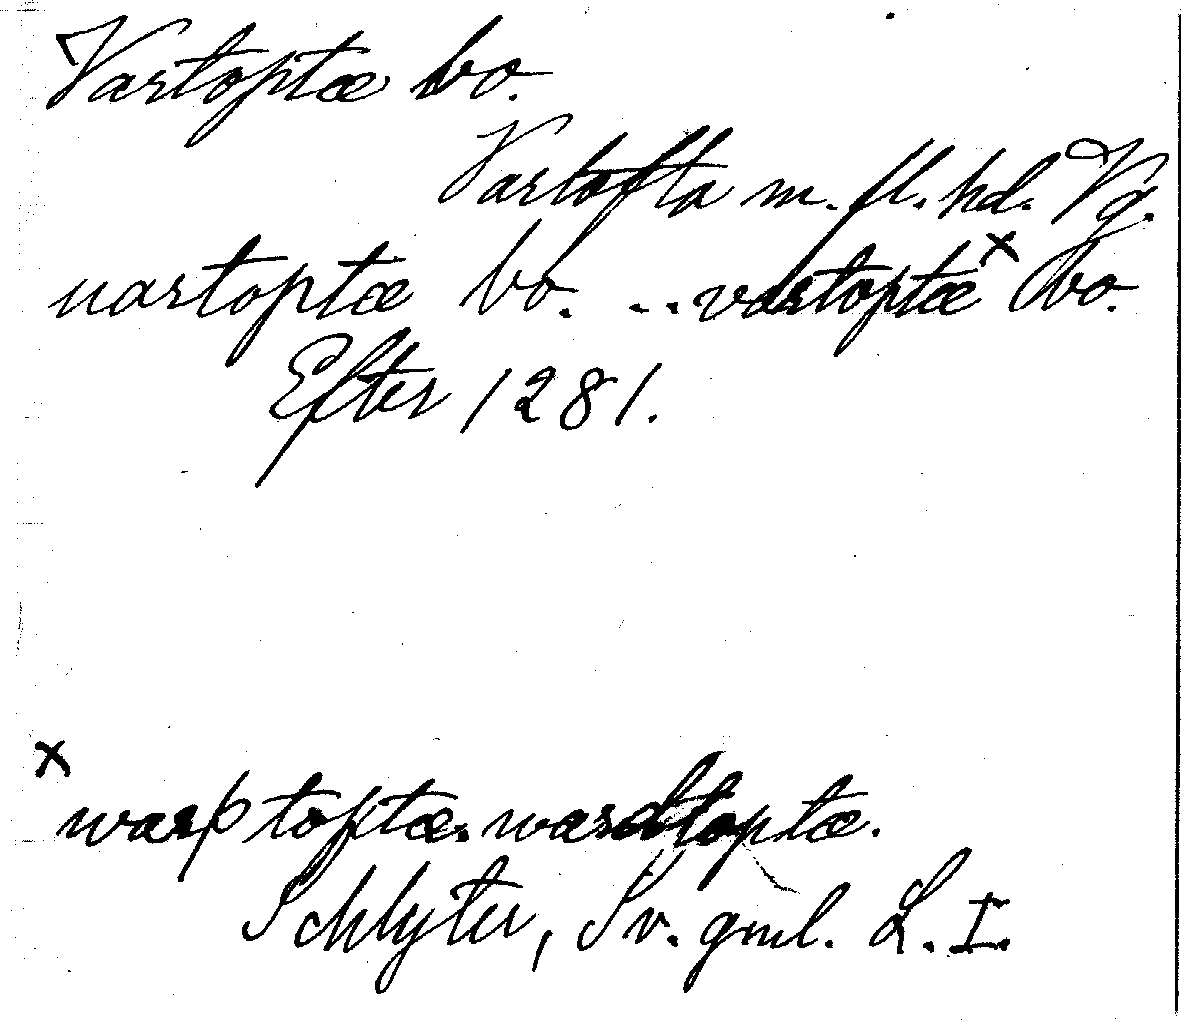 Vartoptæ bo.
Vartofta m. fl. hd. Vg.
uartoptæ bo. .. vartoptæ x bo.
Efter 1281.
x
warþtoptæ. wardtoptæ.
Schlyter, Sv. gml. L. I.